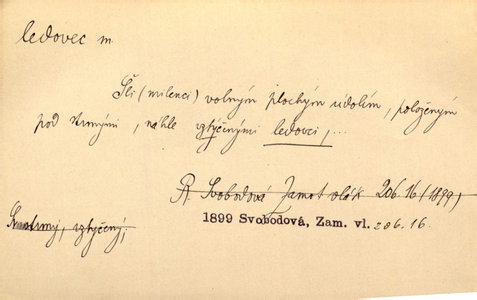 ledovec m.
Šli (milenci) volným plochým údolím, položeným
pod strmými, náhle vztýčenými ledovci,...
R Svobodová Zamot vlák 206.16 (1899)
1899 Svobodová, Zam. vl. 206.16.
strmý, vztýčený;